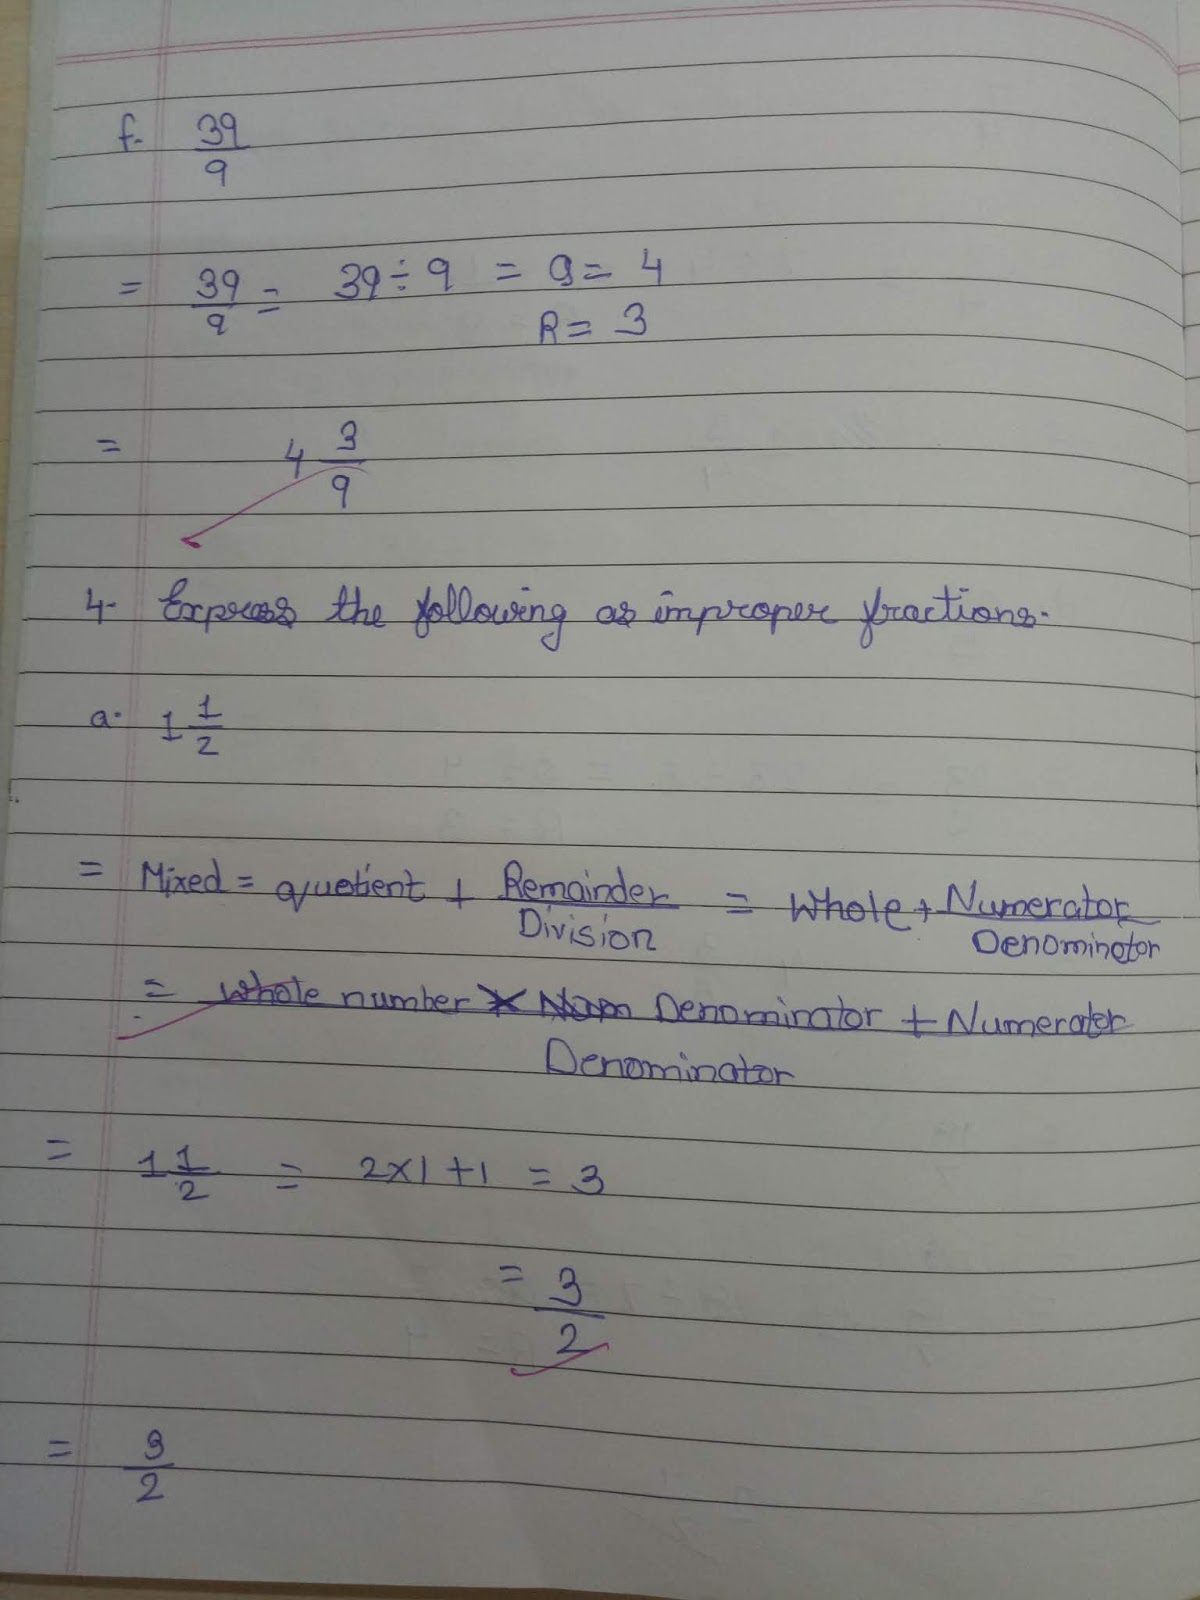 f. 39/9
= 39/9 = 39 ÷ 9 = Q = 4
R = 3
= 4 3/9
4. Express the following as improper fractions.
a. 1 1/2
= Mixed = quotient + Remainder/Division = Whole + Numerator/Denominator
= Whole number × Denominator + Numerator
Denominator
= 1 1/2 = 2×1+1 = 3
= 3/2
= 3/2